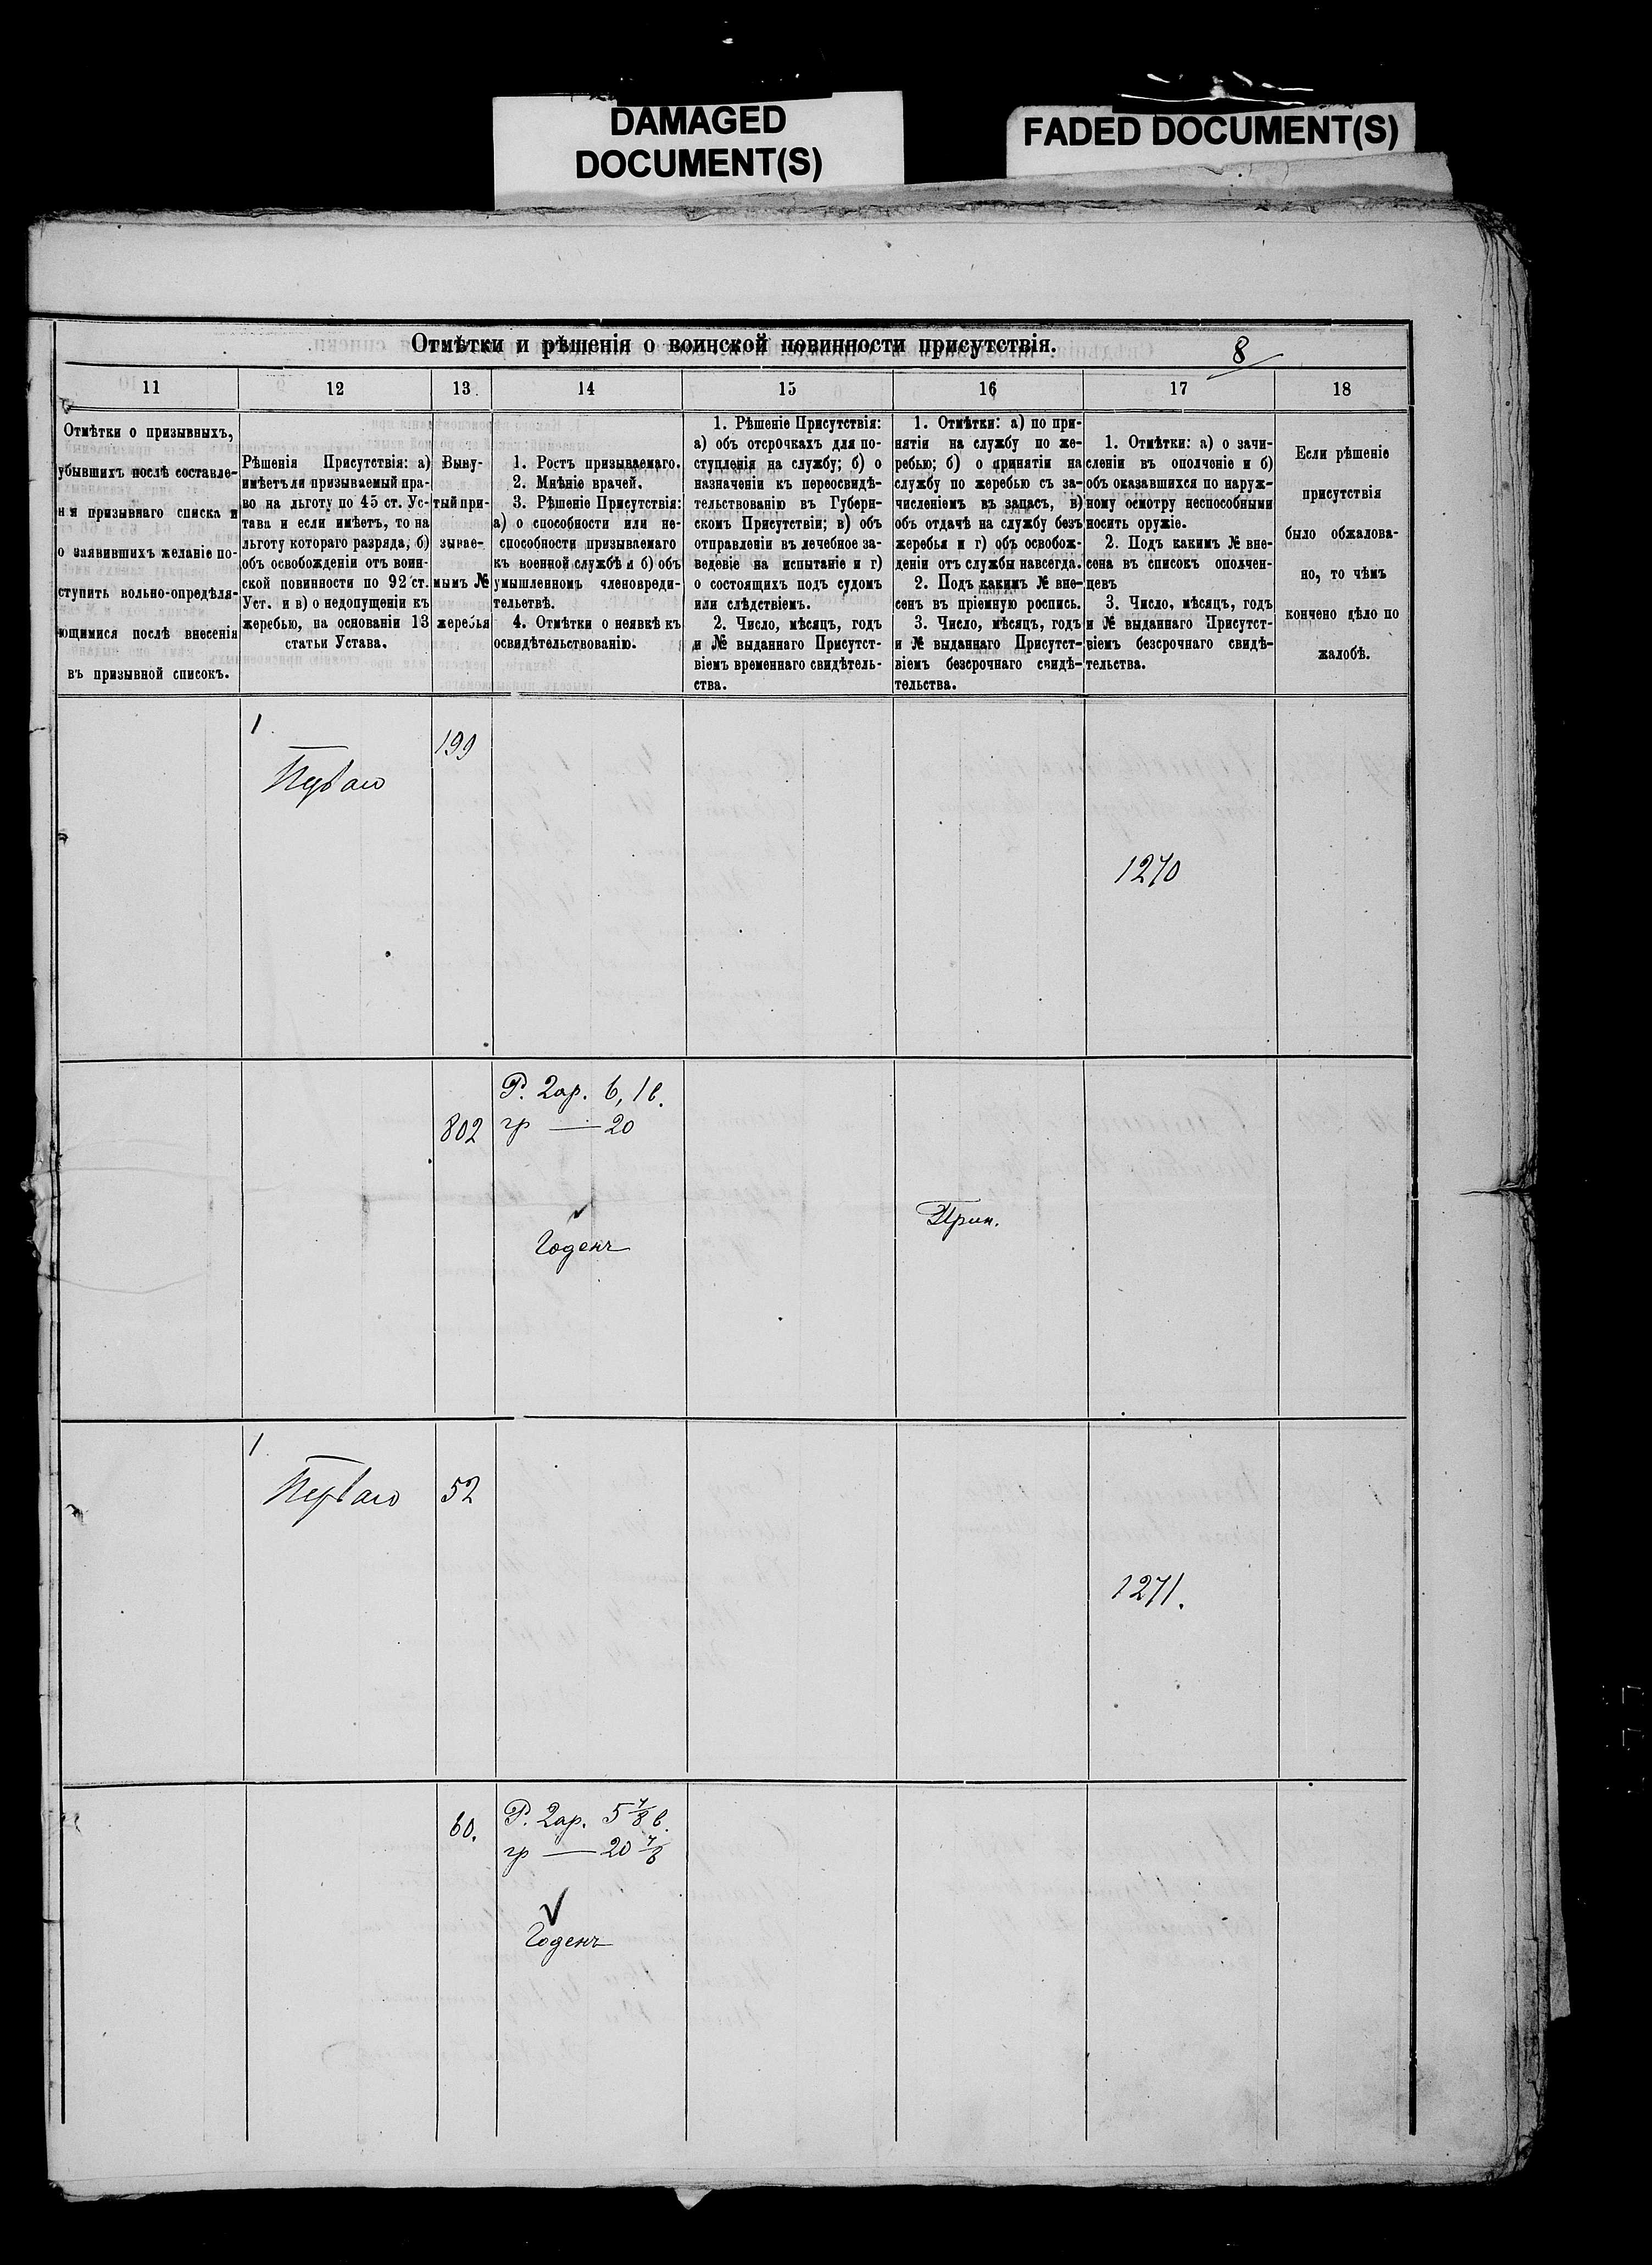 DAMAGED
DOCUMENT(S)
FADED DOCUMENT(S)
Отмѣтки и рѣшенія о воинской повинности присутствія.
8
11 12 13 14 15 16 17 18
Отмѣтки о призывныхъ,
убывшихъ послѣ составле-
нія призывнаго списка и
о заявившихъ желаніе по-
ступить вольно-опредѣля-
ющимися послѣ внесенія
въ призывной списокъ.
Рѣшенія Присутствія: а)
имѣетъ ли призываемый пра-
во на льготу по 45 ст. Ус-
тава и если имѣетъ, то на
льготу котораго разряда; б)
объ освобожденіи отъ воин-
ской повинности по 92 ст.
Уст. и в) о недопущеніи къ
жеребью, на основаніи 13
статьи Устава.
Выну-
тый при-
зывае-
мымъ №
жеребья
1. Ростъ призываемаго.
2. Мнѣніе врачей.
3. Рѣшеніе Присутствія:
а) о способности или не-
способности призываемаго
къ военной службѣ и б) объ
умышленномъ членовреди-
тельствѣ.
4. Отмѣтки о неявкѣ къ
освидѣтельствованію.
1. Рѣшеніе Присутствія:
а) объ отсрочкахъ для по-
ступленія на службу; б) о
назначеніи къ переосвидѣ-
тельствованію въ Губерн-
скомъ Присутствіи; в) объ
отправленіи въ лечебное за-
веденіе на испытаніе и г)
о состоящихъ подъ судомъ
или слѣдствіемъ.
2. Число, мѣсяцъ, годъ
и № выданнаго Присутст-
віемъ временнаго свидѣтель-
ства.
1. Отмѣтки: а) по при-
нятіи на службу по же-
ребью; б) о принятіи на
службу по жеребью съ за-
численіемъ въ запасъ, в)
объ отдачѣ на службу безъ
жеребья и г) объ освобож-
деніи отъ службы навсегда.
2. Подъ какимъ № вне-
сенъ въ пріемную роспись.
3. Число, мѣсяцъ, годъ
и № выданнаго Присутст-
віемъ безсрочнаго свидѣ-
тельства.
1. Отмѣтки: а) о зачи-
сленіи въ ополченіе и б)
объ оказавшихся по наруж-
ному осмотру неспособными
носить оружіе.
2. Подъ какимъ № вне-
сена въ списокъ ополчен-
цевъ
3. Число, мѣсяцъ, годъ
и № выданнаго Присутст-
віемъ безсрочнаго свидѣ-
тельства.
Если рѣшеніе
присутствія
было обжалова-
но, то чѣмъ
кончено дѣло по
жалобѣ.
1
Перваго
199
1270
802
Р. 2 ар. 6, 1 в.
гр — 20
Годенъ
Прин.
1
Перваго
52
1271.
60.
Р. 2 ар. 5 7/8 в.
гр — 20 7/8
Годенъ